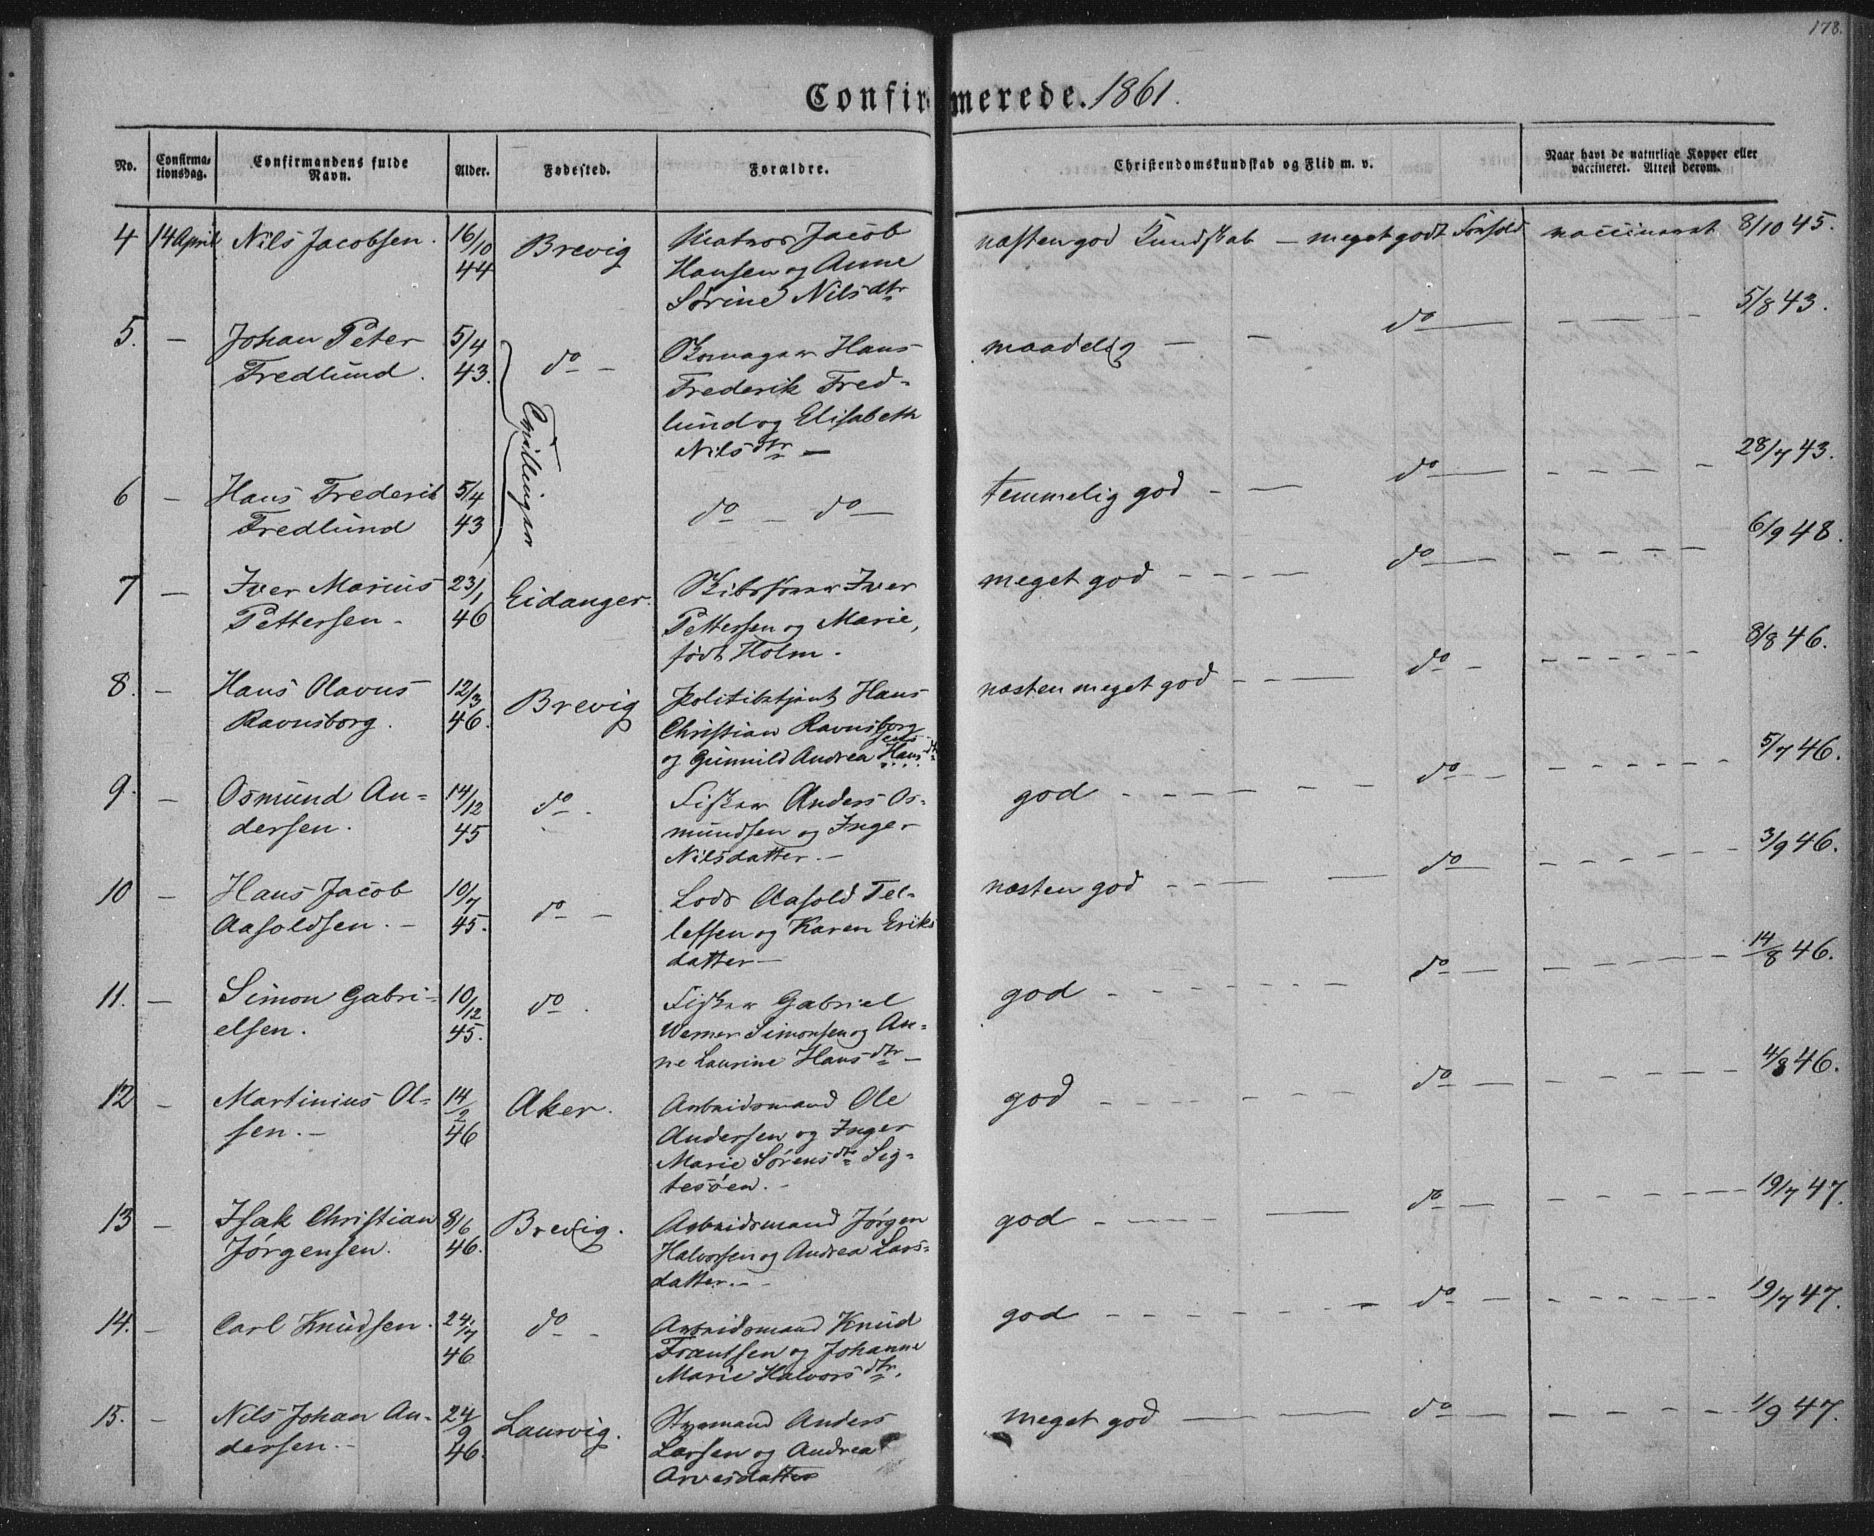 178.
Confirmerede. 1861.
No. Confirmationsdag. Confirmandens fulde Navn. Alder. Fødested. Forældre. Christendomskundskab og Flid m. v. Naar havt de naturlige Kopper eller vaccineret. Attest derom.
4 14 April Nils Jacobsen. 16/10 44 Brevig Matros Jacob
Hansen og Anne
Sørine Nilsdtr næsten god Kundskab – meget godt Forhold vaccineret 8/10 45.
5. – Johan Peter
Fredlund. 5/4 43. do – Skomager Hans
Frederik Fred-
lund og Elisabeth
Nilsdtr – maadelig – – do – – 5/8 43.
Tvillinger
6 – Hans Frederik
Fredlund 5/4 43 do – do – temmelig god – – do – – 28/7 43.
7 – Iver Marius
Pettersen – 23/1 46 Eidanger. Skibsfører Iver
Pettersen og Marie,
født Holm. meget god – – do – – 6/9 48.
8. – Hans Olavus
Ravnsborg. 12/3 46. Brevig Politibetjent Hans
Christian Ravnsborg
og Gunnild Andrea Hansdtr næsten meget god – – do – – 8/8 46.
9. – Osmund An-
dersen. 14/12 45 do – Fisker Anders Os-
mundsen og Inger
Nilsdatter. – god – – do – – 5/7 46.
10 – Hans Jacob
Aasoldsen. – 10/7 45. do – Lods Aasold Tel-
lefsen og Karen Eriks
datter – næsten god – – do – – 3/9 46.
11. – Simon Gabri-
elsen. 10/12 45. do. Fisker Gabriel
Werner Simonsen og An-
ne Laurine Hansdtr – god – – do – – 14/8 46.
12 – Martinius Ol-
sen. – 14/2 46 Aker. Arbeidsmand Ole
Andersen og Inger
Marie Sørensdtr Sig-
tesøen. – god – – do – – 4/8 46.
13 – Isak Christian
Jørgensen. 8/6 46. Brevig. Arbeidsmand Jørgen
Halvorsen og Andrea Lars-
datter. – god – – do – – 19/7 47.
14. – Carl Knudsen. 24/7 46 do – Arbeidsmand Knud
Frantsen og Johanne
Marie Halvorsdtr. god – – do – – 19/7 47.
15. – Nils Johan An-
dersen. – 24/9 46. Laurvig. Styrmand Anders
Larsen og Andrea
Arvesdatter meget god – – do – – 1/9 47.